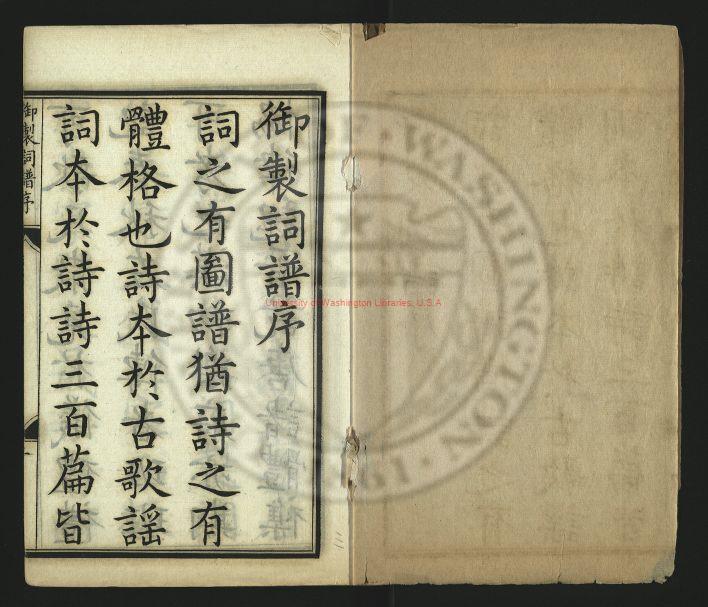 御製詞譜序
詞之有圖譜猶詩之有
體格也詩本於古歌謡
詞本於詩詩三百篇皆
御製詞譜序
University of Washington Libraries, U.S.A
WASHINGTON
1861